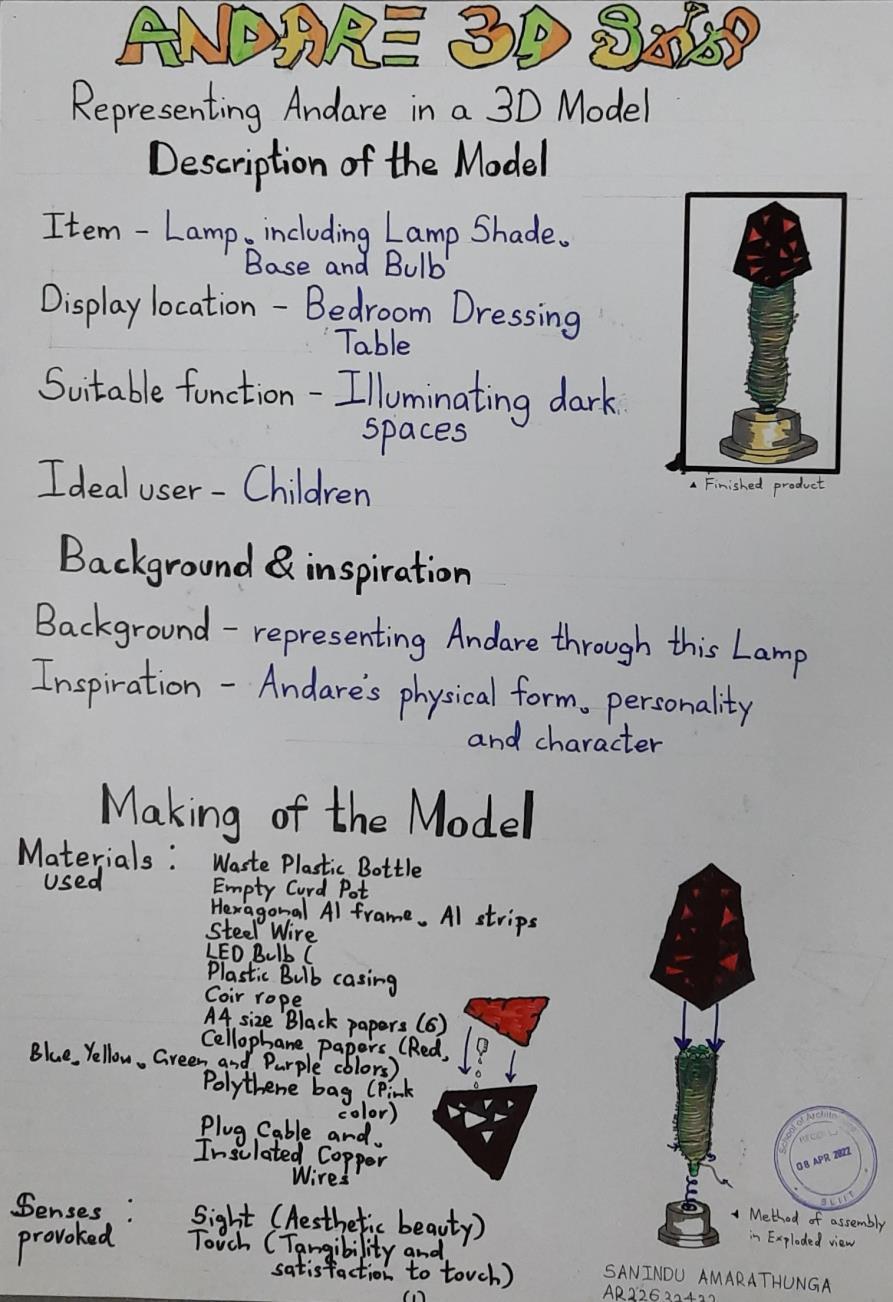 ANDARE 3D
Representing Andare in a 3D Model
Description of the Model
Item - Lamp, including Lamp Shade,
Base and Bulb
Display location - Bedroom Dressing
Table
Suitable function - Illuminating dark
spaces
Ideal user - Children
▲ Finished product
Background & inspiration
Background - representing Andare through this Lamp
Inspiration - Andare's physical form, personality
and character
Making of the Model
Materials used :
Waste Plastic Bottle
Empty Curd Pot
Hexagonal Al frame, Al strips
Steel Wire
LED Bulb (
Plastic Bulb casing
Coir rope
A4 size Black papers (6)
Cellophane papers (Red,
Blue, Yellow, Green and Purple colors)
Polythene bag (Pink
color)
Plug Cable and,
Insulated Copper
Wires
Senses provoked :
Sight (Aesthetic beauty)
Touch (Tangibility and
satisfaction to touch)
(1)
School of Archite
08 APR 2022
SLIIT
◄ Method of assembly
in Exploded view
SANINDU AMARATHUNGA